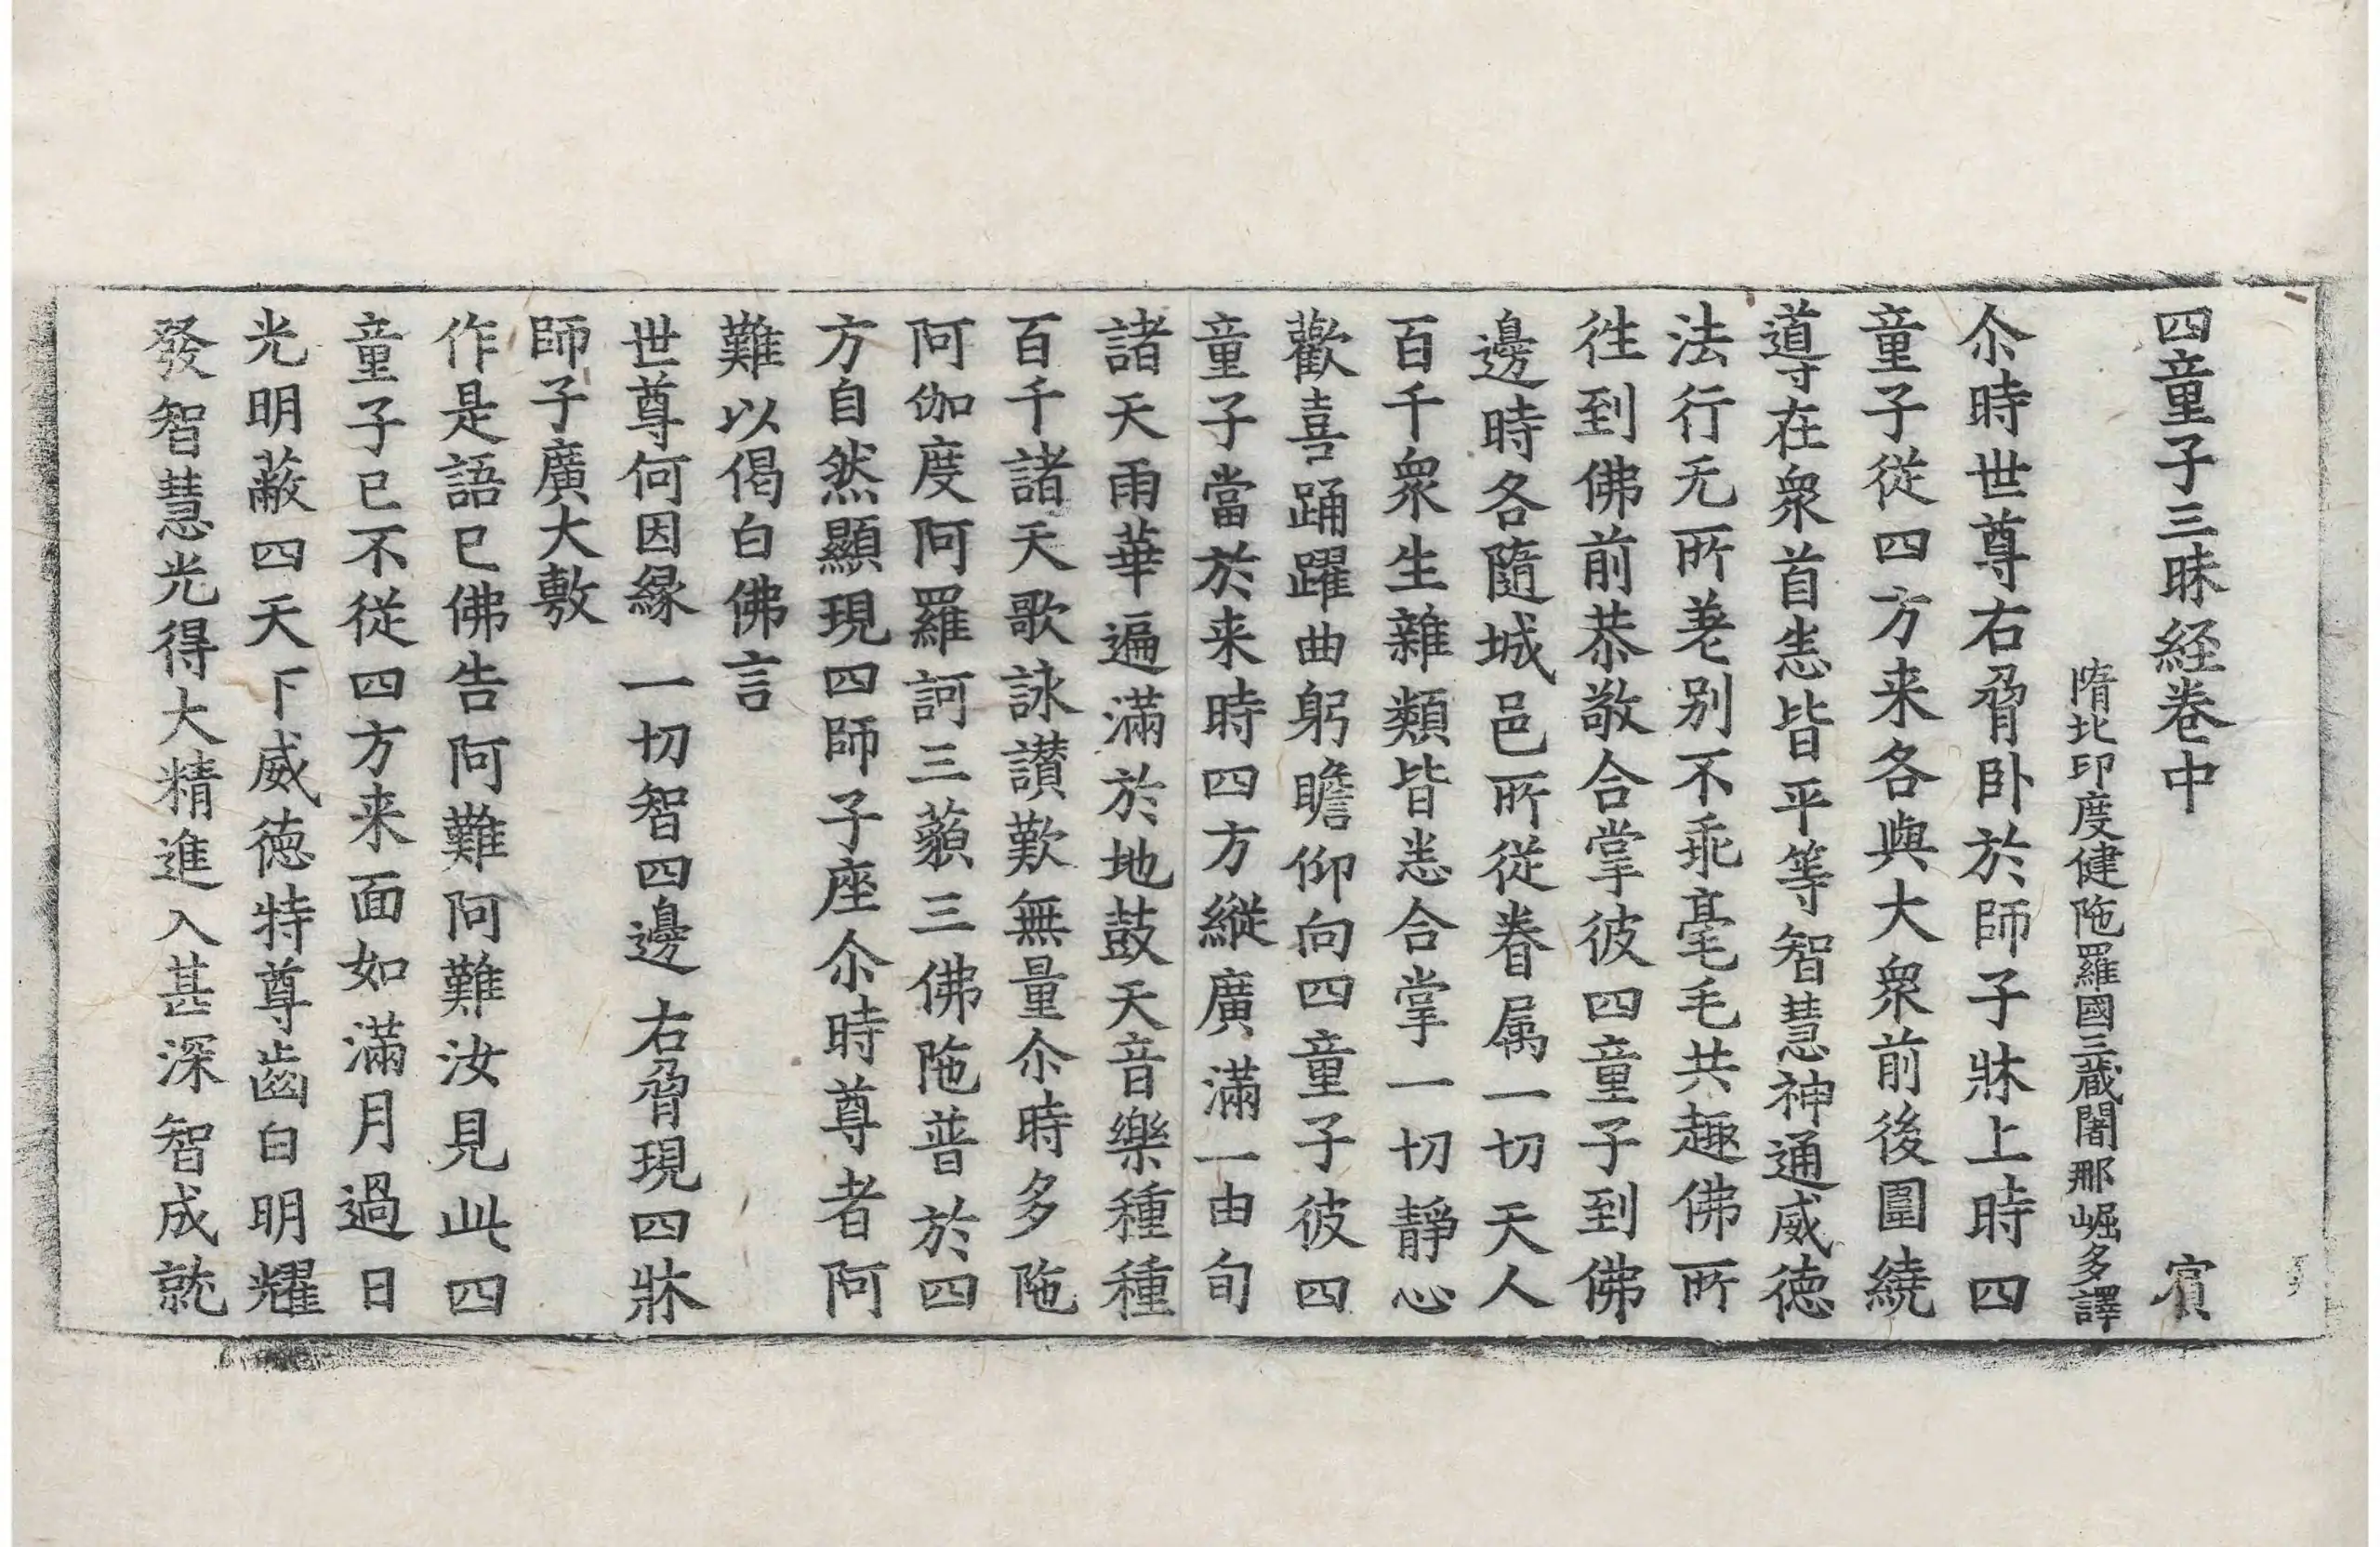 四童子三昧経卷中 賔
隋北印度健陁羅國三蔵闍那崛多譯
尒時世尊右脅卧於師子牀上時四
童子從四方来各與大衆前後圍繞
導在衆首恚皆平等智慧神通威徳
法行无所差别不乖毫毛共趣佛所
徃到佛前恭敬合掌彼四童子到佛
邊時各隨城邑所從眷属一切天人
百千衆生雜類皆恚合掌一切靜心
歡喜踊躍曲躬瞻仰向四童子彼四
童子當於来時四方縱廣滿一由旬
諸天雨華遍滿於地鼓天音樂種種
百千諸天歌詠讃歎無量尒時多陁
阿伽度阿羅訶三藐三佛陁普於四
方自然顯現四師子座尒時尊者阿
難以偈白佛言
世尊何因縁 一切智四邊 右脅現四牀
師子廣大敷
作是語已佛告阿難阿難汝見此四
童子已不從四方来面如滿月過日
光明蔽四天下威徳特尊齒白明耀
發智慧光得大精進入甚深智成就